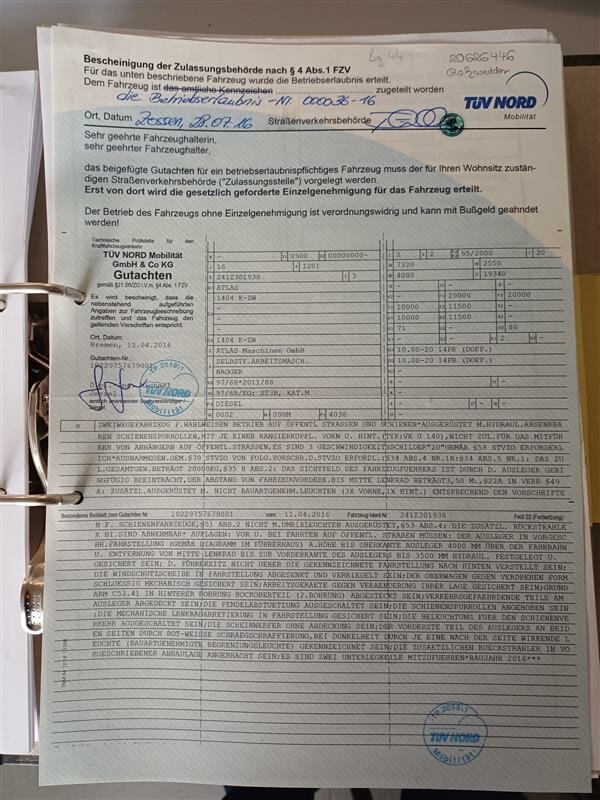 Bg 44
20626446
Bescheinigung der Zulassungsbehörde nach § 4 Abs.1 FZV
Für das unten beschriebene Fahrzeug wurde die Betriebserlaubnis erteilt.
Dem Fahrzeug ist das amtliche Kennzeichen zugeteilt worden
die Betriebserlaubnis-Nr. 000036-16
TÜV NORD
Mobilität
Ort, Datum Zossen, 28.07.16 Straßenverkehrsbehörde
Sehr geehrte Fahrzeughalterin,
sehr geehrter Fahrzeughalter,
das beigefügte Gutachten für ein betriebserlaubnispflichtiges Fahrzeug muss der für Ihren Wohnsitz zustän-
digen Straßenverkehrsbehörde ("Zulassungsstelle") vorgelegt werden.
Erst von dort wird die gesetzlich geforderte Einzelgenehmigung für das Fahrzeug erteilt.
Der Betrieb des Fahrzeugs ohne Einzelgenehmigung ist verordnungswidrig und kann mit Bußgeld geahndet
werden!
Technische Prüfstelle für den
Kraftfahrzeugverkehr
TÜV NORD Mobilität
GmbH & Co KG
Gutachten
gemäß §21 StVZO i.V.m. §4 Abs. 1 FZV
Es wird bescheinigt, dass die
nebenstehend aufgeführten
Angaben zur Fahrzeugbeschreibung
zutreffen und das Fahrzeug den
geltenden Vorschriften entspricht.
Ort, Datum:
Bremen, 12.04.2016
Gutachten-Nr.:
10229757679001
- 0900 00000000-
16 1201
241Z301938 3
ATLAS
1404 K-ZW
-
-
-
1404 K-ZW
ATLAS Maschinen GmbH
SELBSTF.ARBEITSMASCH.
BAGGER
97/68*2011/88
97/68/EG; ST3B, KAT.M
DIESEL
0002 098M 4038
2 2 95/2000 20
7320 2550
4000 19340
- - -
- 20000 20000
10000 11500 -
10000 11500 -
71 80
- - 2 -
10.00-20 14PR (DOPP.)
10.00-20 14PR (DOPP.)
-
-
-
-
ZWEIWEGEFAHRZEUG F.WAHLWEISEN BETRIEB AUF ÖFFENTL STRASSEN UND SCHIENEN*AUSGERÜSTET M.HYDRAUL.ABSENKBA
REN SCHIENENSPURROLLEN,MIT JE EINER RANGIERKUPPL. VORN U. HINT.(TYP:VK U 140),NICHT ZUL.FÜR DAS MITFÜH
REN VON ANHÄNGERN AUF ÖFFENTL.STRASSEN,ES SIND 3 GESCHWINDIGKEITSSCHILDER"20"GEMÄß §58 STVZO ERFORDERL
ICH*AUSNAHMEGEN.GEM.§70 STVZO VON FOLG.VORSCHR.D.STVZO ERFORDL.:§34 ABS.4 NR.1B:§34 ABS.5 NR.1: DAS ZU
L.GESAMTGEW.BETRÄGT 20000KG,§35 B ABS.2: DAS SICHTFELD DES FAHRZEUGFUEHRERS IST DURCH D. AUSLEGER GERI
NGFÜGIG BEEINTRÄCHT,DER ABSTAND VON FAHRZEUGVORDERK.BIS MITTE LENKRAD BETRÄGT3,50 M,§22A IN VERB §49
A: ZUSÄTZL.AUSGERÜSTET M. NICHT BAUARTGENEHM.LEUCHTEN (3X VORNE,1X HINT.) ENTSPRECHEND DEN VORSCHRIFTE
Besonderes Beiblatt zum Gutachten Nr. 10229757679001 vom: 11.04.2016 Fahrzeug-Ident-Nr.: 241Z301938 Feld 22 (Fortsetzung)
N F. SCHIENENFAHRZEUGE,§51 ABS.2 NICHT M.UMRIßLEUCHTEN AUSGERÜSTET,§53 ABS.4: DIE ZUSÄTZL. RÜCKSTRAHLE
R HI.SIND ABNEHMBAR* AUFLAGEN: VOR U. BEI FAHRTEN AUF ÖFFENTL. STRAßEN MÜSSEN: DER AUSLEGER IN VORGESC
HR.FAHRSTELLUNG (GEMÄß DIAGRAMM IM FÜHRERHAUS) A.HÖHE BIS OBERKANTE AUSLEGER 4000 MM ÜBER DER FAHRBAHN
U. ENTFERNUNG VON MITTE LENKRAD BIS ZUR VORDERKANTE DES AUSLEGERS BIS 3500 MM HYDRAUL. FESTGELEGT U.
GESICHERT SEIN; D. FÜHRERSITZ NICHT UEBER DIE GEKENNZEICHNETE FAHRSTELLUNG NACH HINTEN VERSTELLT SEIN;
DIE WINDSCHUTZSCHEIBE IN FAHRSTELLUNG ABGESENKT UND VERRIEGELT SEIN;DER OBERWAGEN GEGEN VERDREHEN FORM
SCHLUESSIG MECHANISCH GESICHERT SEIN;ARBEITSGERAETE GEGEN VERAENDERUNG IHRER LAGE GESICHERT SEIN;GRUND
ARM C53.41 IN HINTERER BOHRUNG BOCKOBERTEIL (2.BOHRUNG) ABGESTECKT SEIN;VERKEHRSGEFAEHRDENDE TEILE AM
AUSLEGER ABGEDECKT SEIN;DIE PENDELABSTUETZUNG AUSGESCHALTET SEIN;DIE SCHIENENSPURROLLEN ANGEHOBEN SEIN
;DIE MECHANISCHE LENKRADARRETIERUNG IN FAHRSTELLUNG GESICHERT SEIN;DIE BELEUCHTUNG FUER DEN SCHIENENVE
RKEHR AUSGESCHALTET SEIN;DIE SCHEINWERFER OHNE ABDECKUNG SEIN;DER VORDERSTE TEIL DES AUSLEGERS AN BEID
EN SEITEN DURCH ROT-WEISSE SCHRAEGSCHRAFFIERUNG,BEI DUNKELHEIT DURCH JE EINE NACH DER SEITE WIRKENDE L
EUCHTE (BAUARTGENEHMIGTE BEGRENZUNGSLEUCHTE) GEKENNZEICHNET SEIN;DIE ZUSAETZLICHEN RUECKSTRAHLER IN VO
RGESCHRIEBENER ANBAULAGE ANGEBRACHT SEIN;ES SIND ZWEI UNTERLEGKEILE MITZUFÜHREN*BAUJAHR 2016***
TÜV NORD
Mobilität